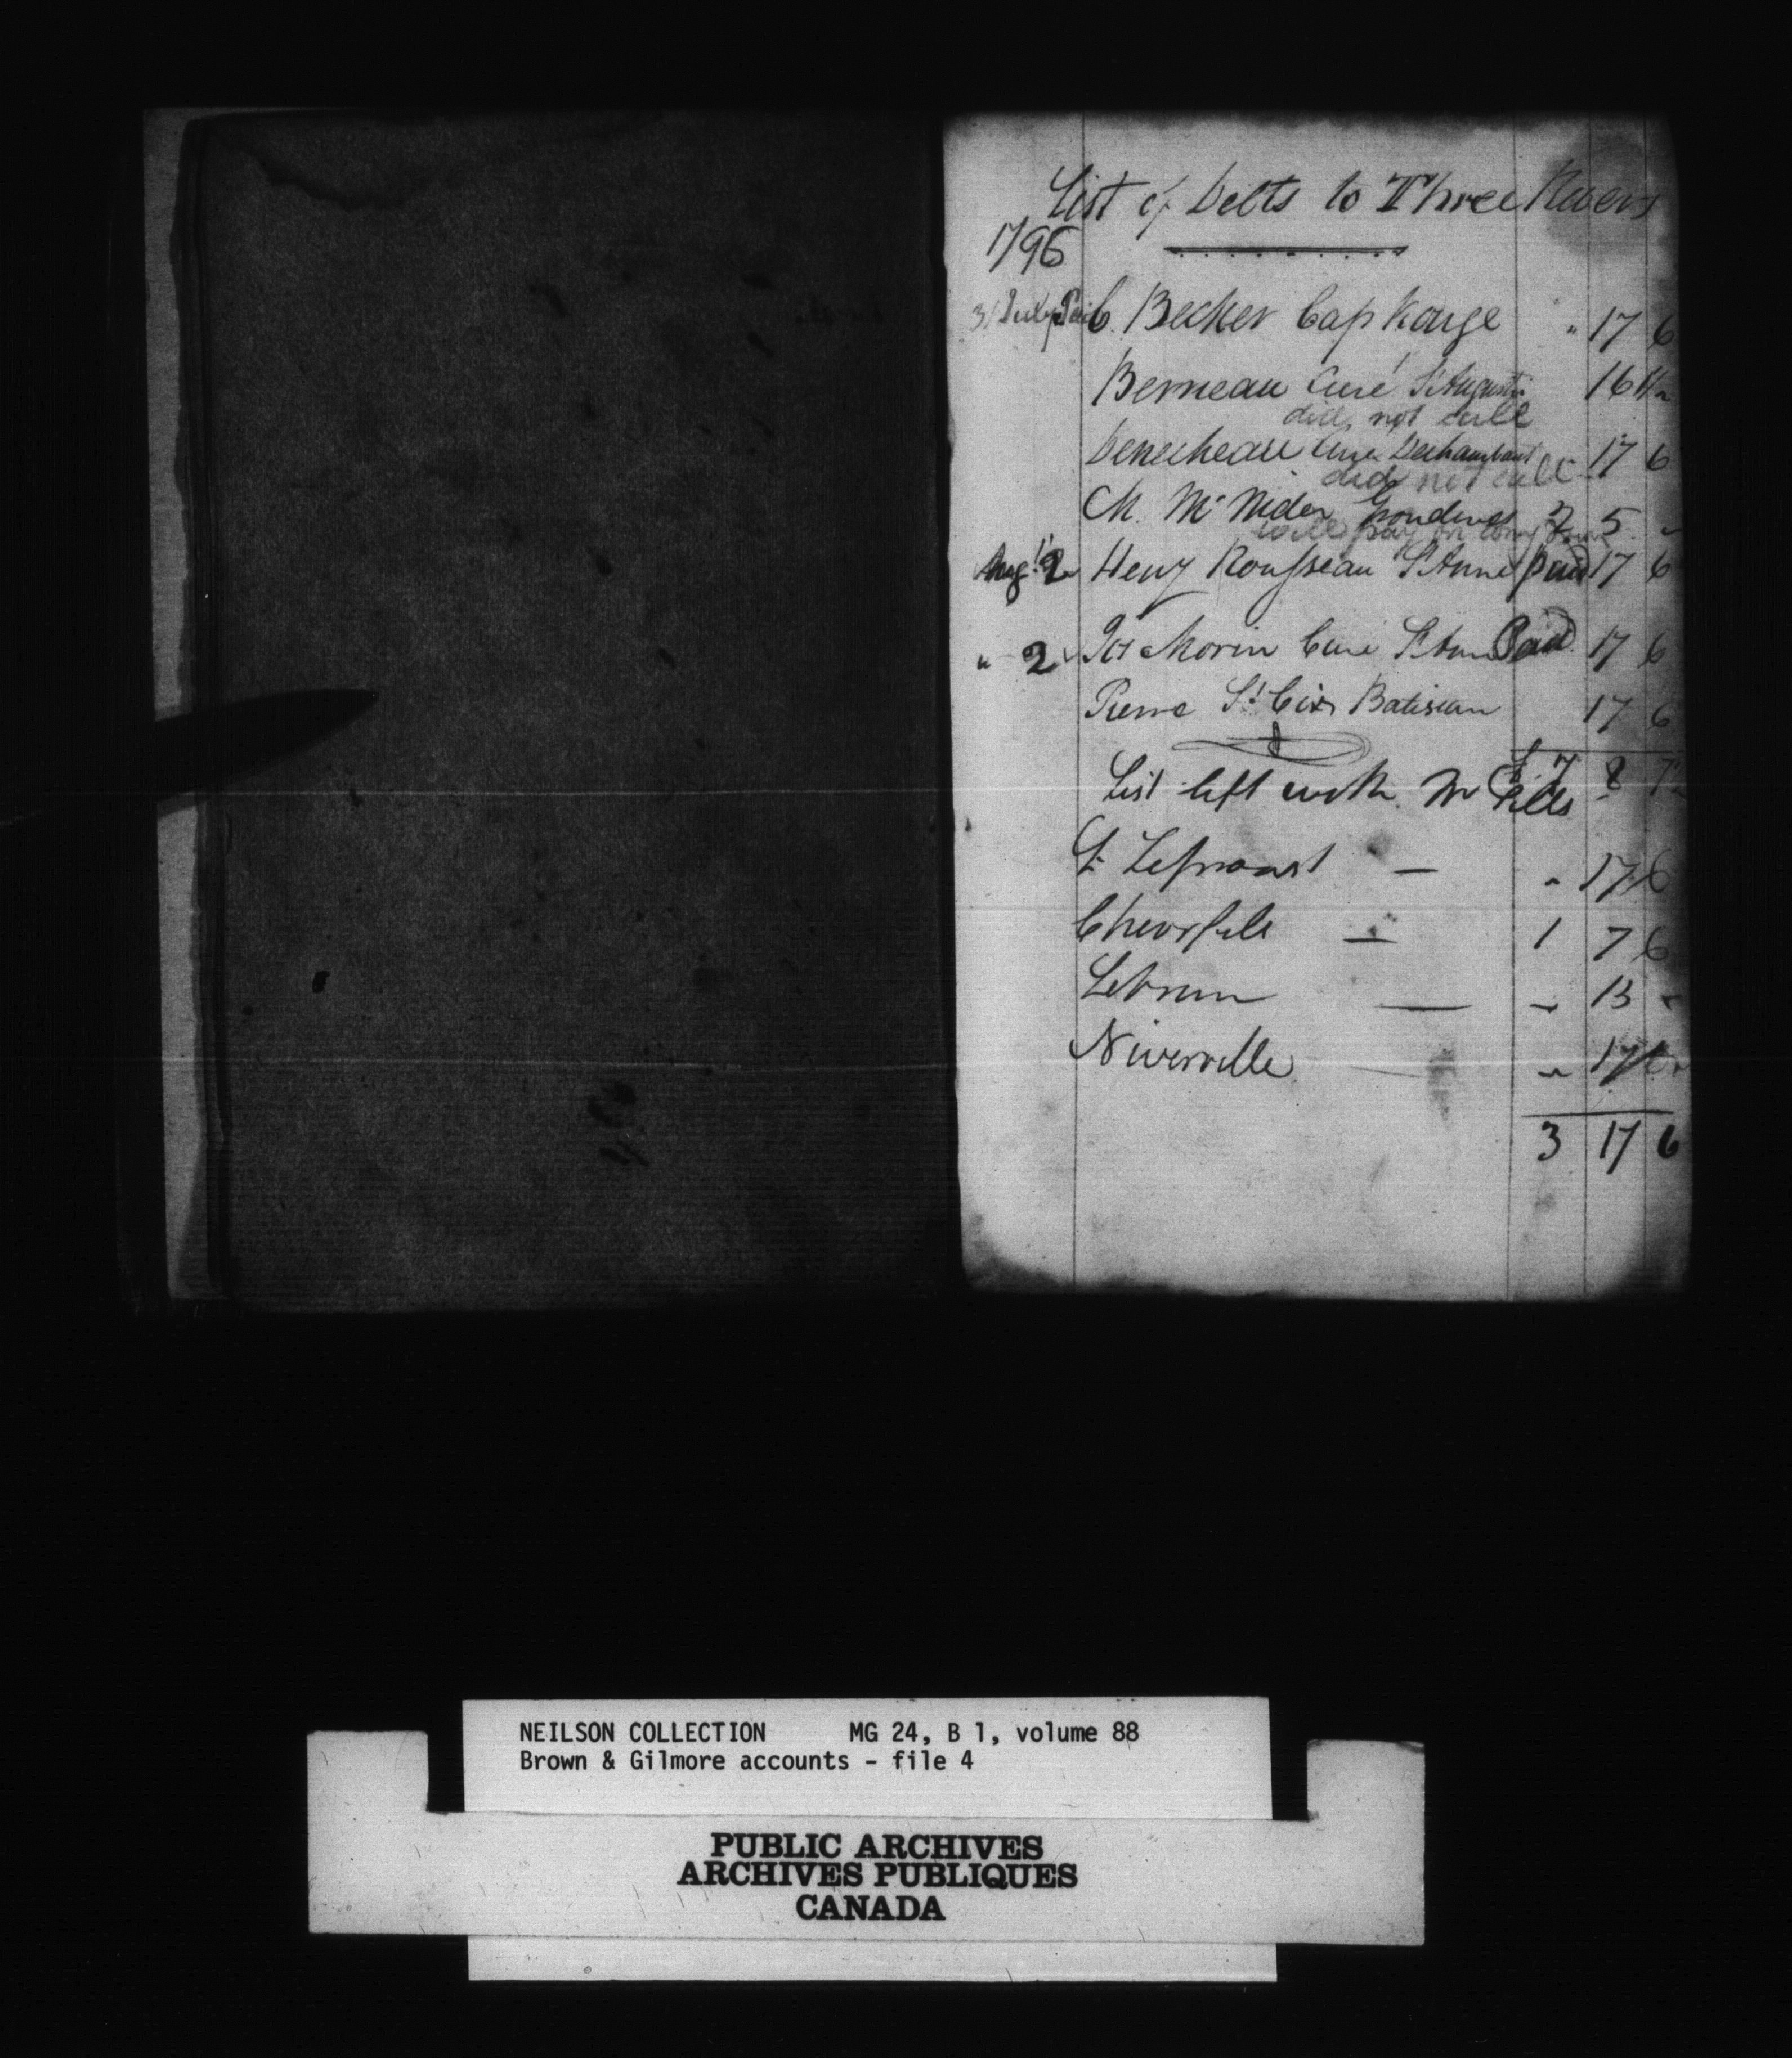 List of Debts to Three Rivers
1796
31 July Paid C. Becker Cap Rouge " 17 6
Berneau Curé St Augustin 16
did not call
Denecheau Curé Dechambaut 17 6
did not call
M. McNider Grondines 2 5 "
will pay on coming down
Augt 2 Henry Rousseau St Anne paid 17 6
" 2 Jos Morin Curé St Ann Paid 17 6
Pierre St Cir Batiscan 17 6
£ 7 8
List left with Mr Pills
L. Leproust — " 17 6
Chevrfils — 1 7 6
Lebrun — " 15 "
Niverville " 17 6
3 17 6
NEILSON COLLECTION MG 24, B 1, volume 88
Brown & Gilmore accounts - file 4
PUBLIC ARCHIVES
ARCHIVES PUBLIQUES
CANADA